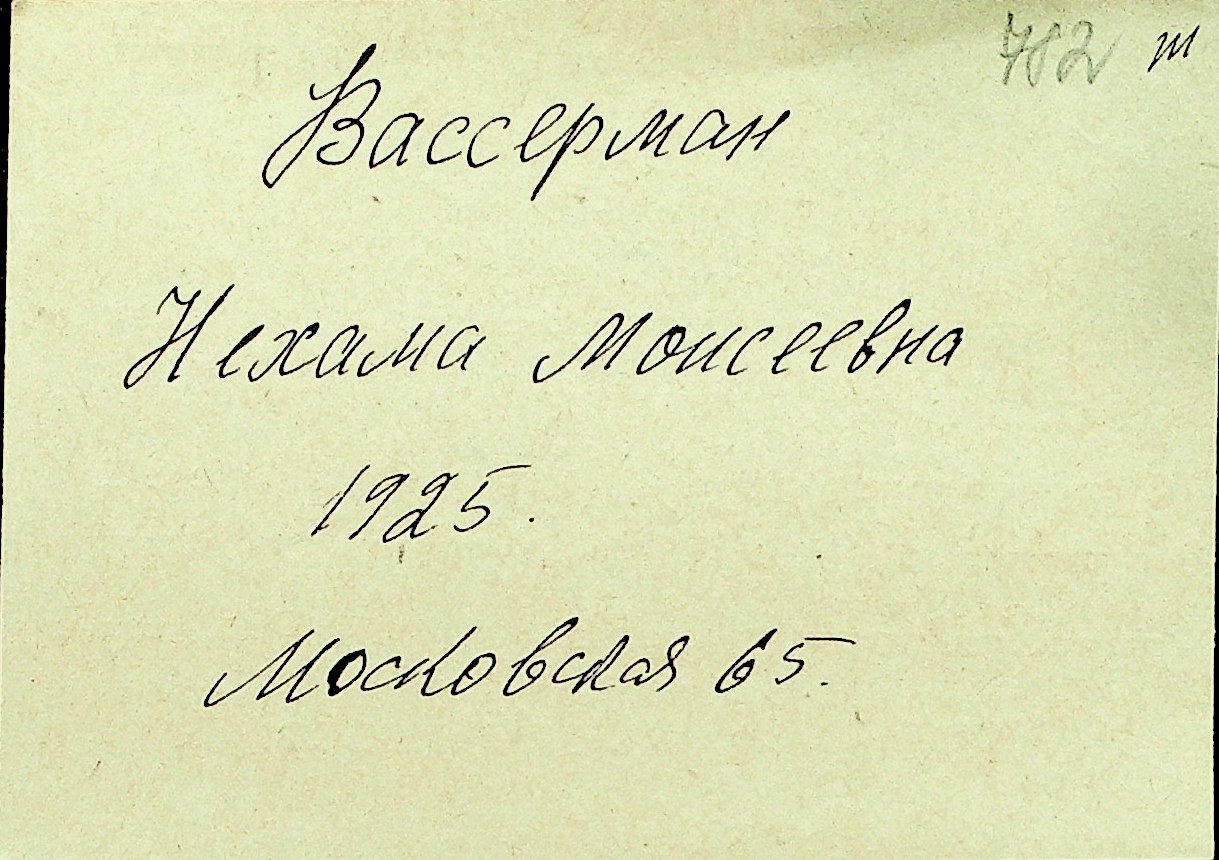 782 т
Вассерман
Нехама Моисеевна
1925.
Московская 65.